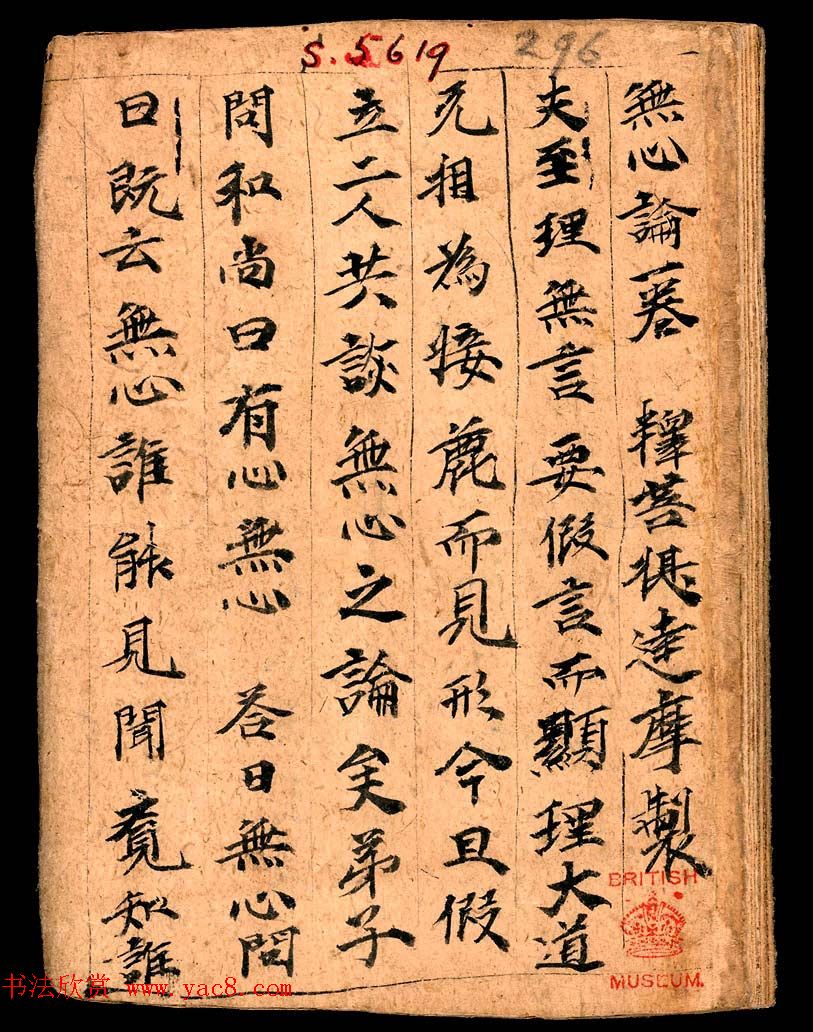 S.5619 296
無心論一卷 釋菩提達摩製
夫至理無言要假言而顯理大道
无相為接麁而見形今且假
立二人共談無心之論矣弟子
問和尚曰有心無心 荅曰無心問
曰既云無心誰能見聞覺知誰
BRITISH
MUSEUM.
书法欣赏 www.yac8.com